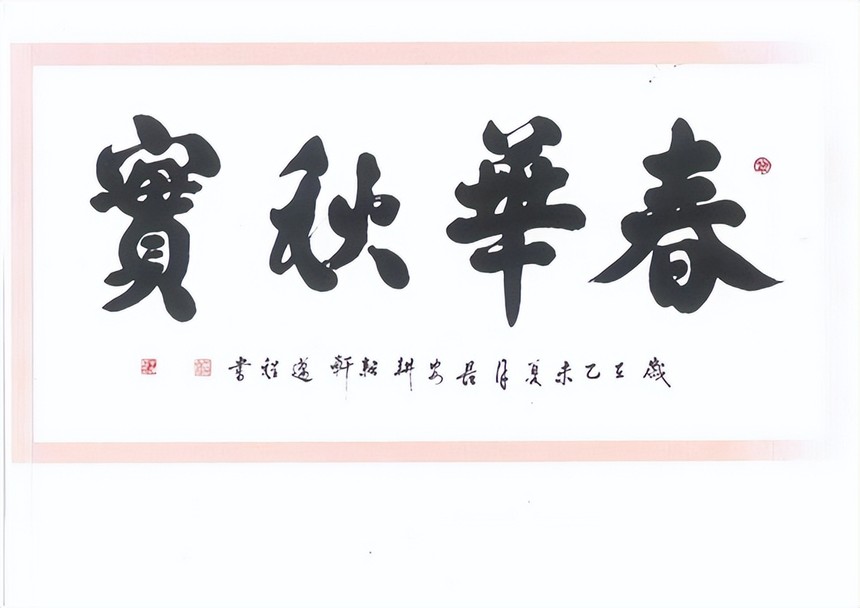 春華秋實
歲在乙未夏月長安耕耘軒遂程書